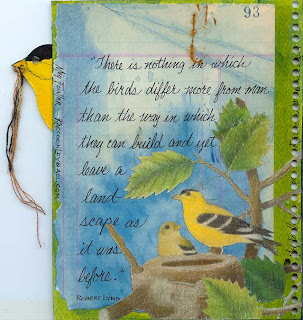 93
"There is nothing in which
the birds differ more from man
than the way in which
they can build and yet
leave a
land
scape as
it was
before."
ROBERT LYND